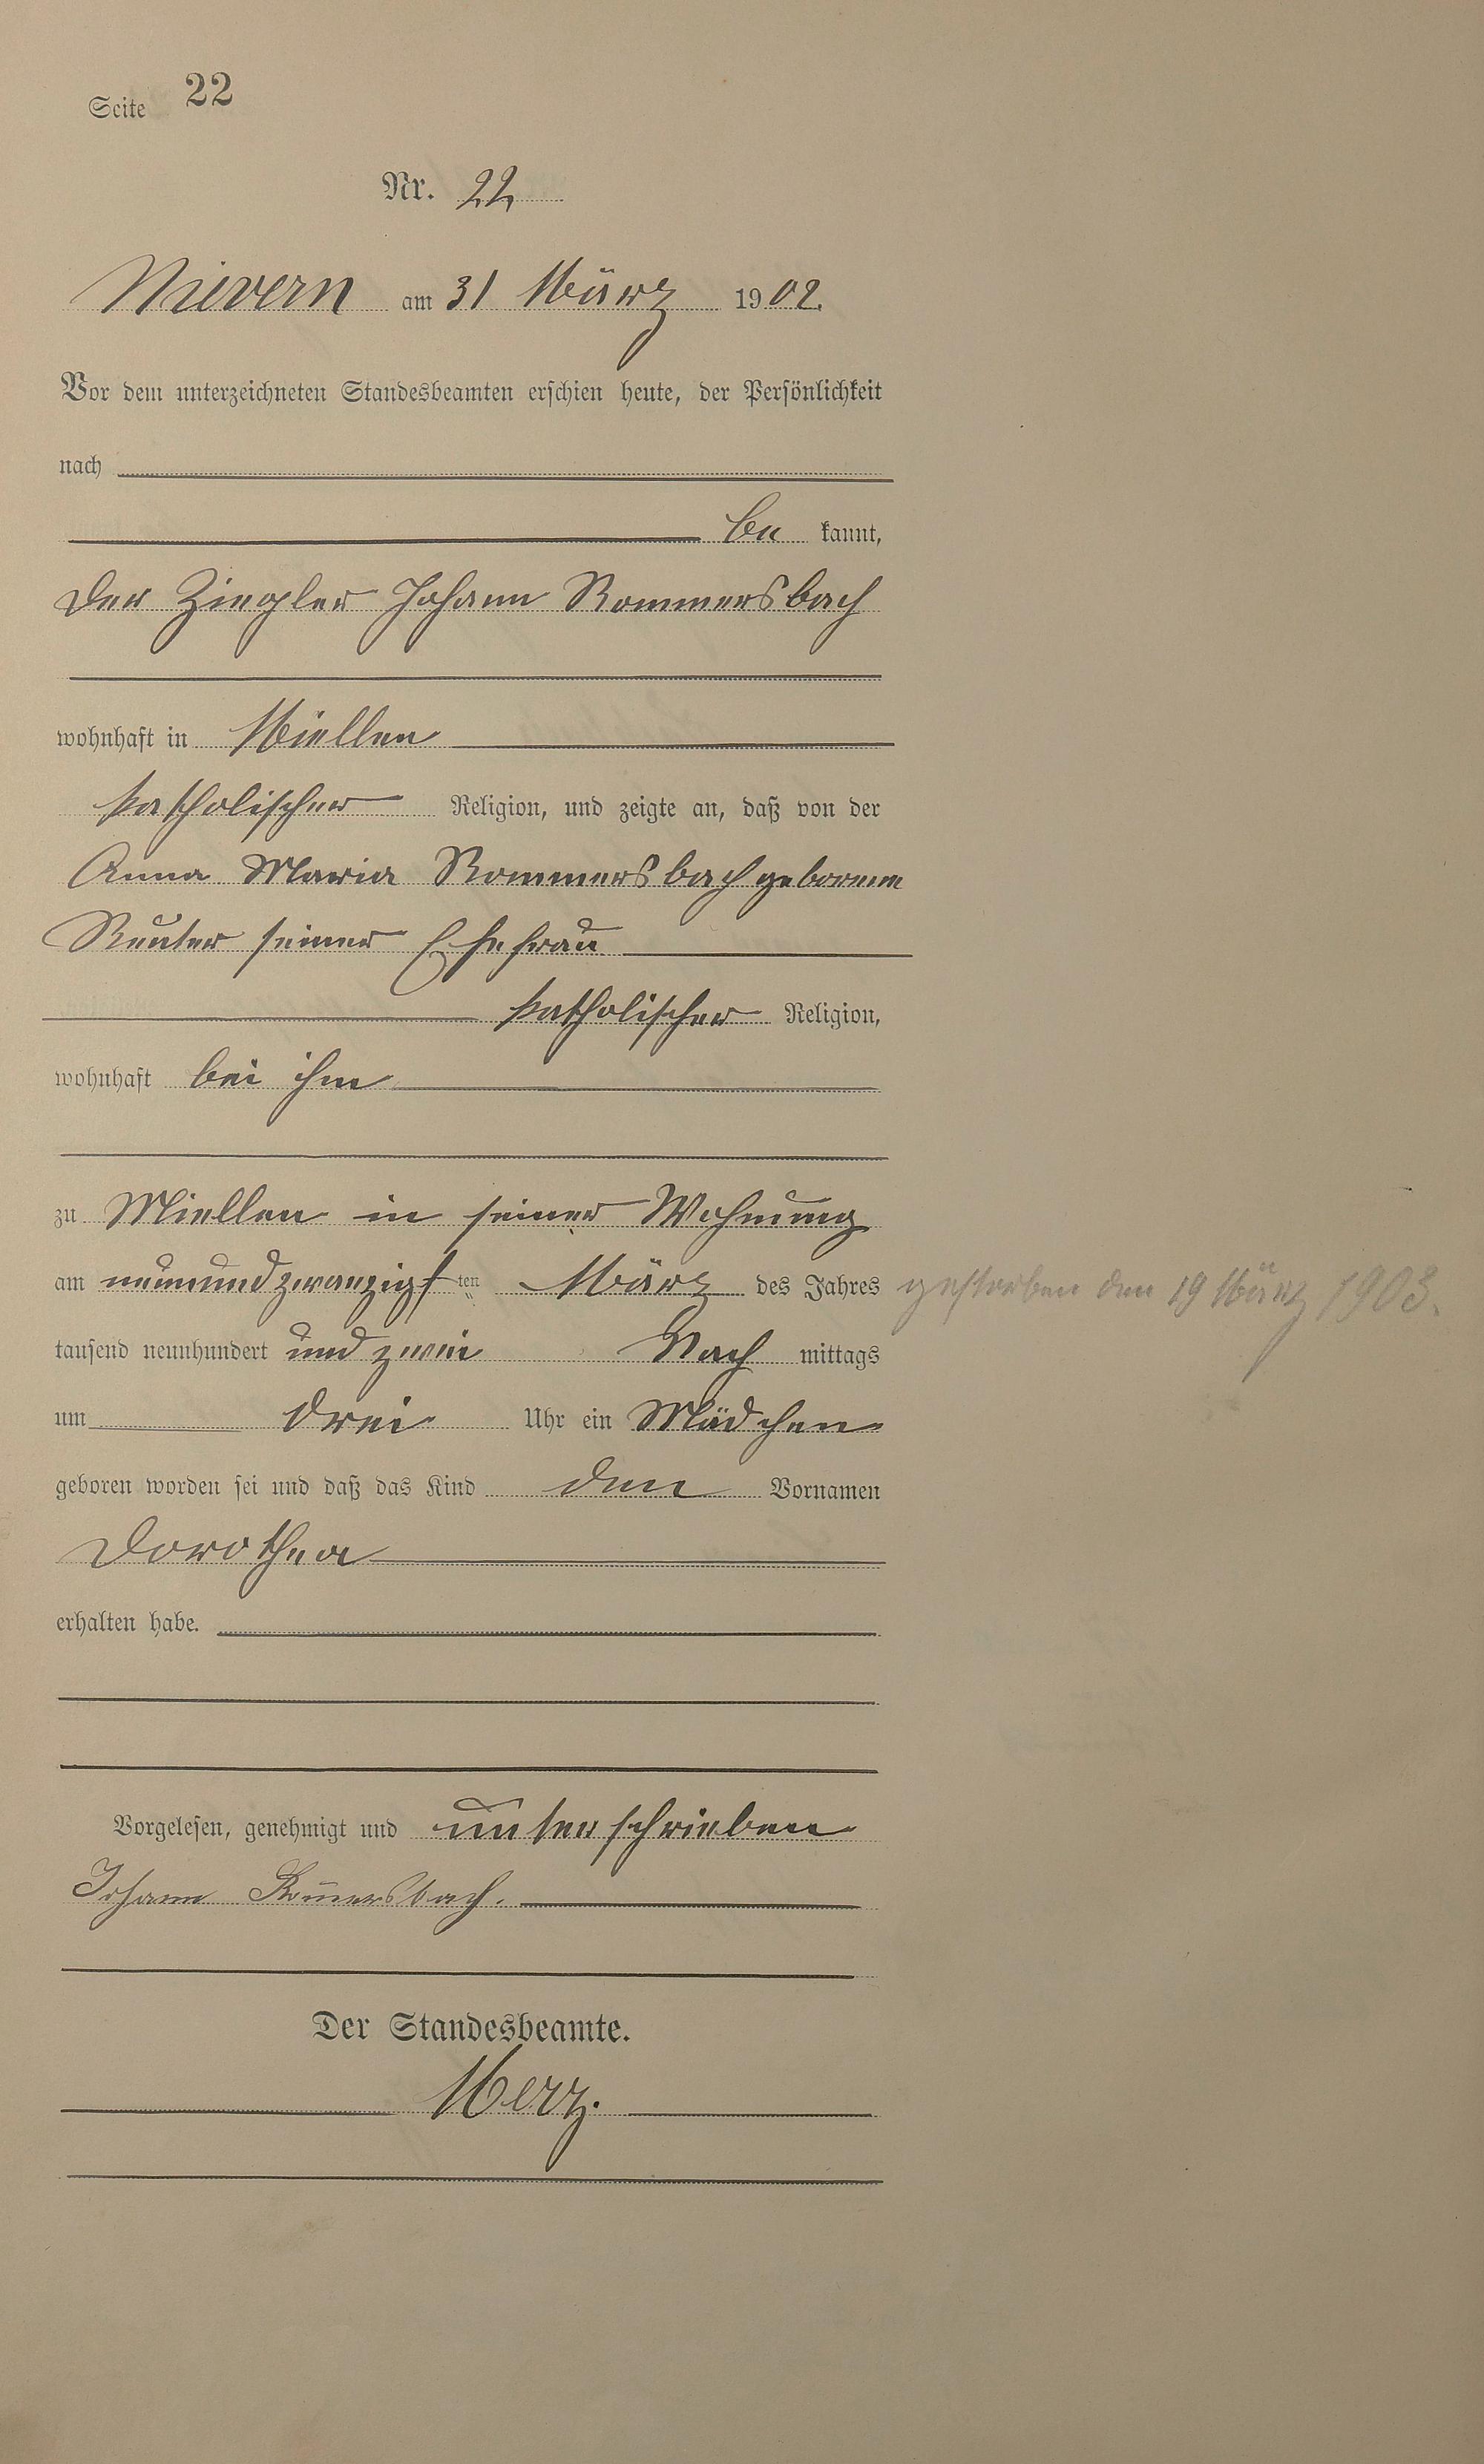 Seite 22
Nr. 22
Nievern am 31 März 1902.
Vor dem unterzeichneten Standesbeamten erschien heute, der Persönlichkeit
nach
be kannt,
der Ziegler Johann Rommersbach
wohnhaft in Miellen
katholischer Religion, und zeigte an, daß von der
Anna Maria Rommersbach geborenen
Reuter seiner Ehefrau
katholischer Religion,
wohnhaft bei ihm
zu Miellen in seiner Wohnung
am neunundzwanzigsten März des Jahres
gestorben den 19 März 1903.
tausend neunhundert und zwei Nach mittags
um drei Uhr ein Mädchen
geboren worden sei und daß das Kind den Vornamen
Dorothea
erhalten habe.
Vorgelesen, genehmigt und unterschrieben
Johann Rom̅ersbach.
Der Standesbeamte.
Merz.